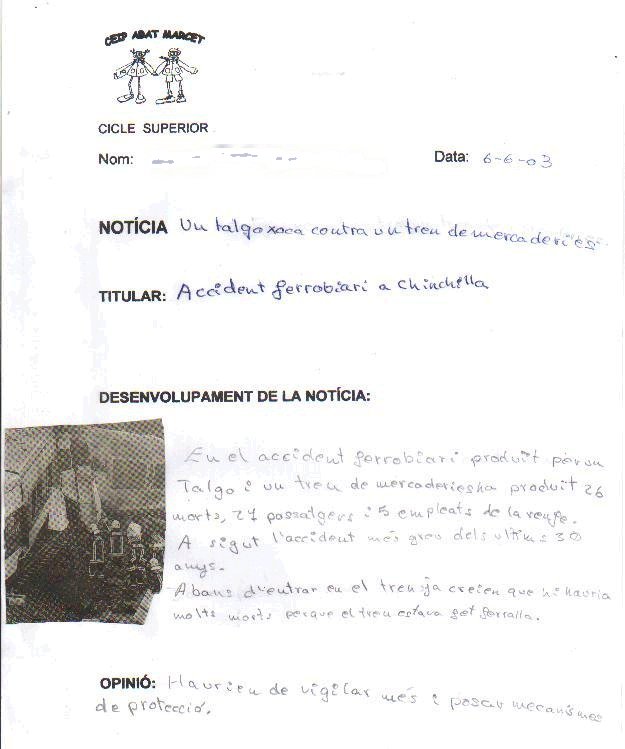 CEIP ABAT MARCET
CICLE SUPERIOR
Nom:
Data: 6-6-03
NOTÍCIA Un talgo xoca contra un treu de mercaderies.
TITULAR: Accident ferrobiari a Chinchilla
DESENVOLUPAMENT DE LA NOTÍCIA:
En el accident ferrobiari produit per un
Talgo i un treu de mercaderies ha produit 26
morts, 21 passatgers i 5 empleats de la renfe.
A sigut l'accident més greu dels ultims 30
anys.
Abans d'entrar en el tren ja creien que hi hauria
molts morts perque el treu estava fet ferralla.
OPINIÓ: Haurien de vigilar més i posar mecanismes
de protecció.